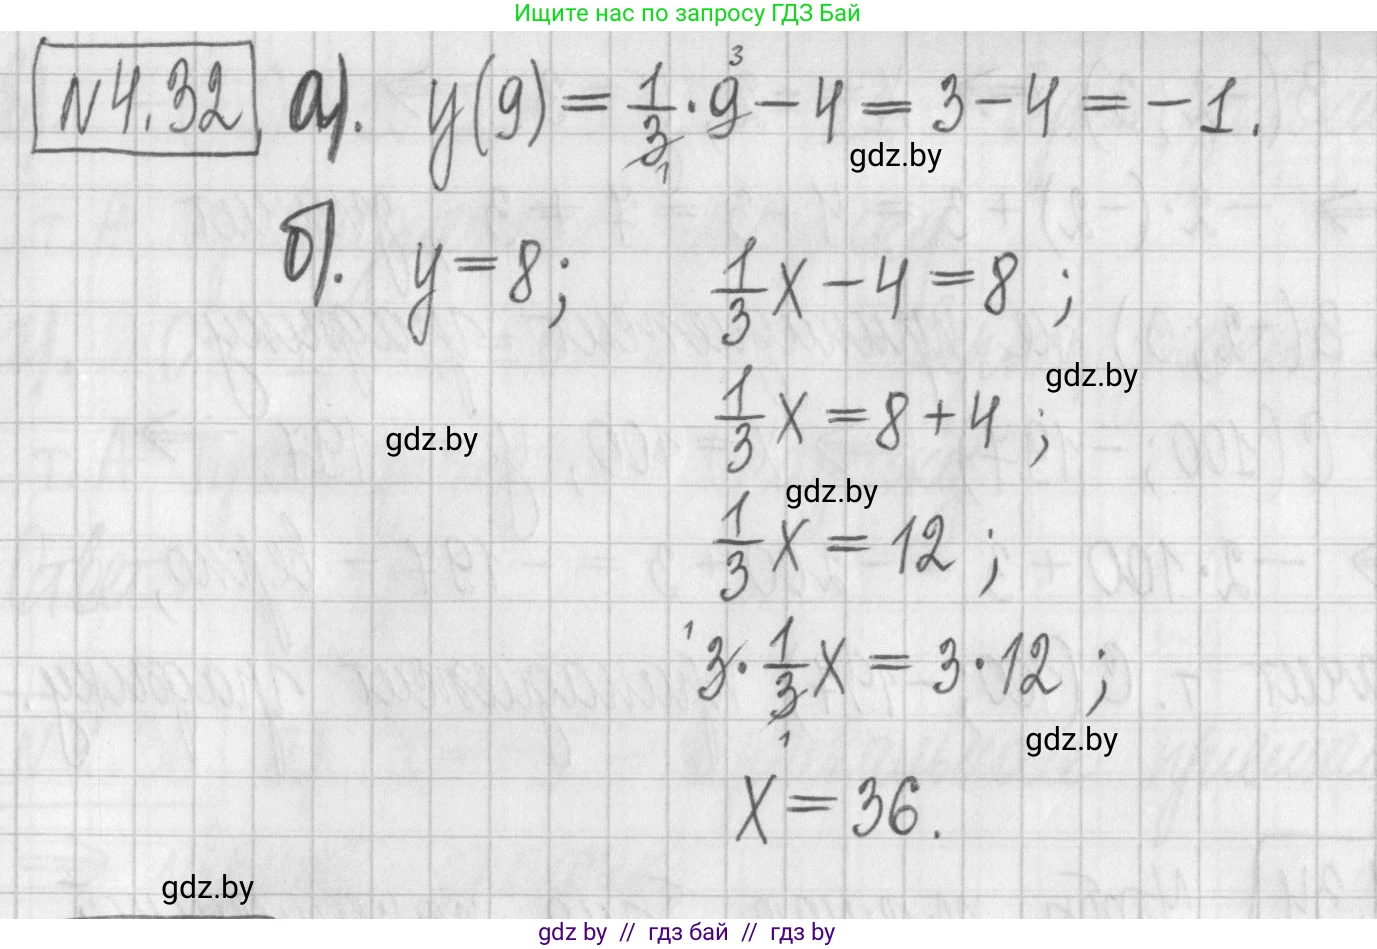 Ищите нас по запросу ГДЗ Бай
№4.32 а). y(9) = 1/3 · 9 3 1 − 4 = 3 − 4 = −1.
gdz.by
б). y = 8; 1/3 x − 4 = 8 ;
gdz.by
1/3 x = 8 + 4 ;
gdz.by
gdz.by
1/3 x = 12 ;
1 3 · 1/3 x = 3 · 12 ;
1
gdz.by
x = 36.
gdz.by
gdz by // гдз бай // гдз by